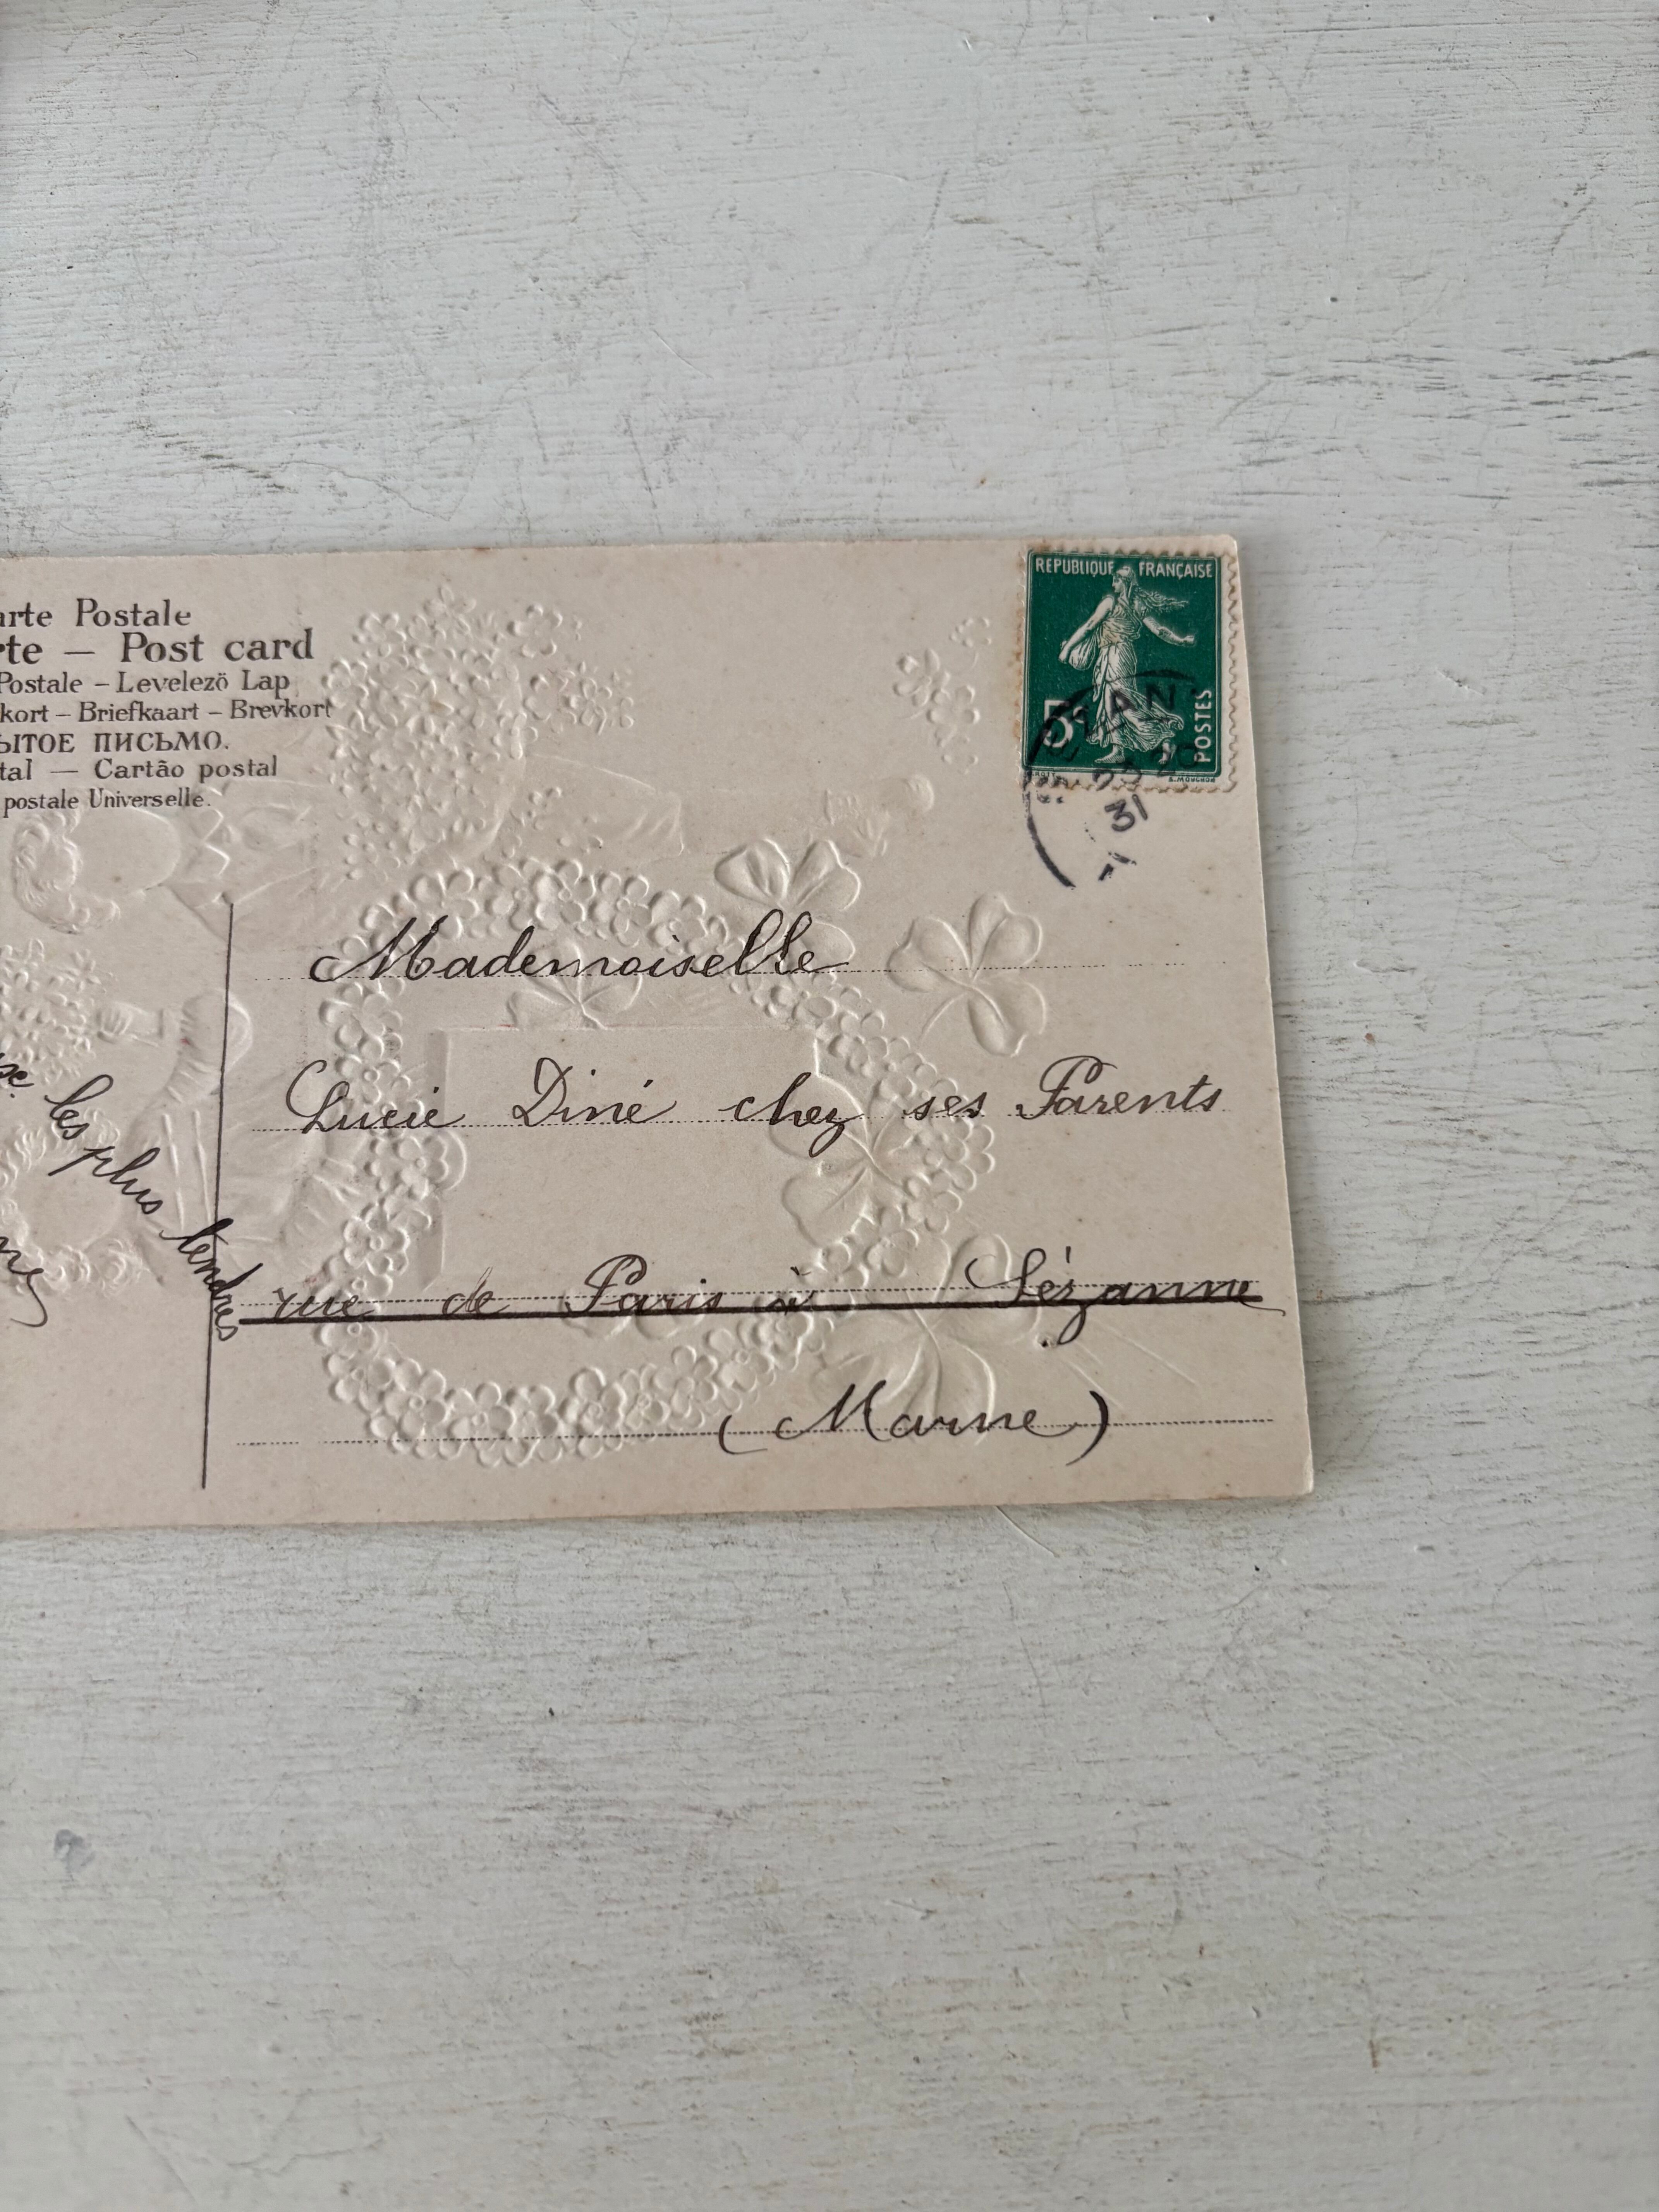 arte Postale
rte — Post card
Postale – Levelezö Lap
kort – Briefkaart – Brevkort
ЫТОЕ ПИСЬМО.
tal — Cartão postal
postale Universelle.
REPUBLIQUE FRANÇAISE
5c
POSTES
31
Mademoiselle
Lucie Diné chez ses Parents
rue de Paris à Sézanne
(Marne)
les plus tendres